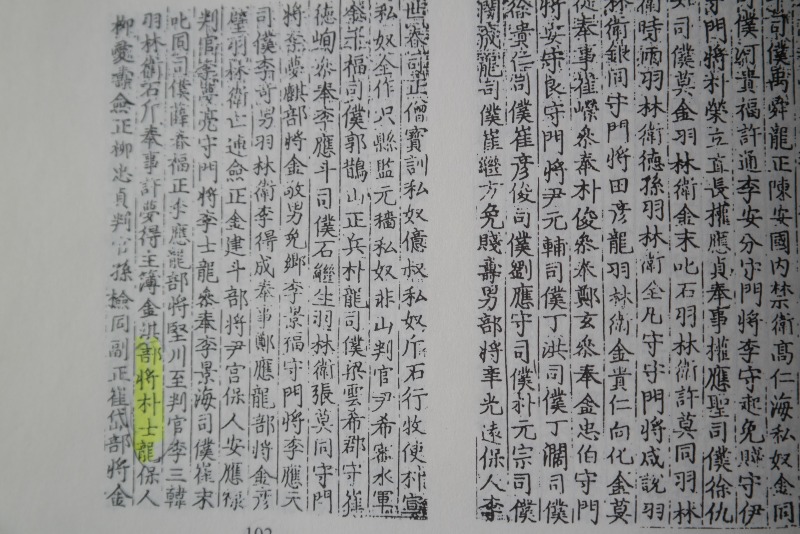 司僕禹舜龍正陳安國內禁衛高仁海私奴金同
司僕貴福許通李安分守門將李守起免賤守伊
守門將朴榮立直長權應貞奉事權應聖司僕徐仇
如司僕莫金羽林衛金末叱石羽林衛許莫同羽林
衛時丙羽林衛德孫羽林衛仝凡守守門將咸說羽
林衛銀同守門將田彦龍羽林衛金貴仁向化金莫
從奉事崔嶸參奉朴俊參奉鄭玄參奉金忠伯守門
將安守良守門將尹元輔司僕丁洪司僕丁濶司僕
徐貴仁司僕崔彦俊司僕劉應守司僕朴元宗司僕
成龍司僕崔繼方免賤壽男部將李光遠保人李
世春司正僧寶訓私奴億叔私奴斤石行牧使朴
私奴仝作只縣監元穡私奴非山判官尹希水軍
福司僕郭鵲山正兵朴龍司僕梁雲希郡守崔
德峋參奉李應斗司僕石繼生羽林衛張莫同守門
將秦夢麒部將金敬男免鄉李景福守門將李應天
司僕李奇男羽林衛李得成奉事鄭應龍部將金彦
璧羽林衛亡連僉正金建斗部將尹宮保人安應祿
判官李夢亮守門將李士龍參奉李景海司僕崔末
叱同司僕薛春福正李應龍部將堅川至判官李三韓
羽林衛石斤奉事許夢得主簿金洪部將朴士龍保人
柳愛僉正柳忠貞判官孫檢同副正崔岱部將金
102